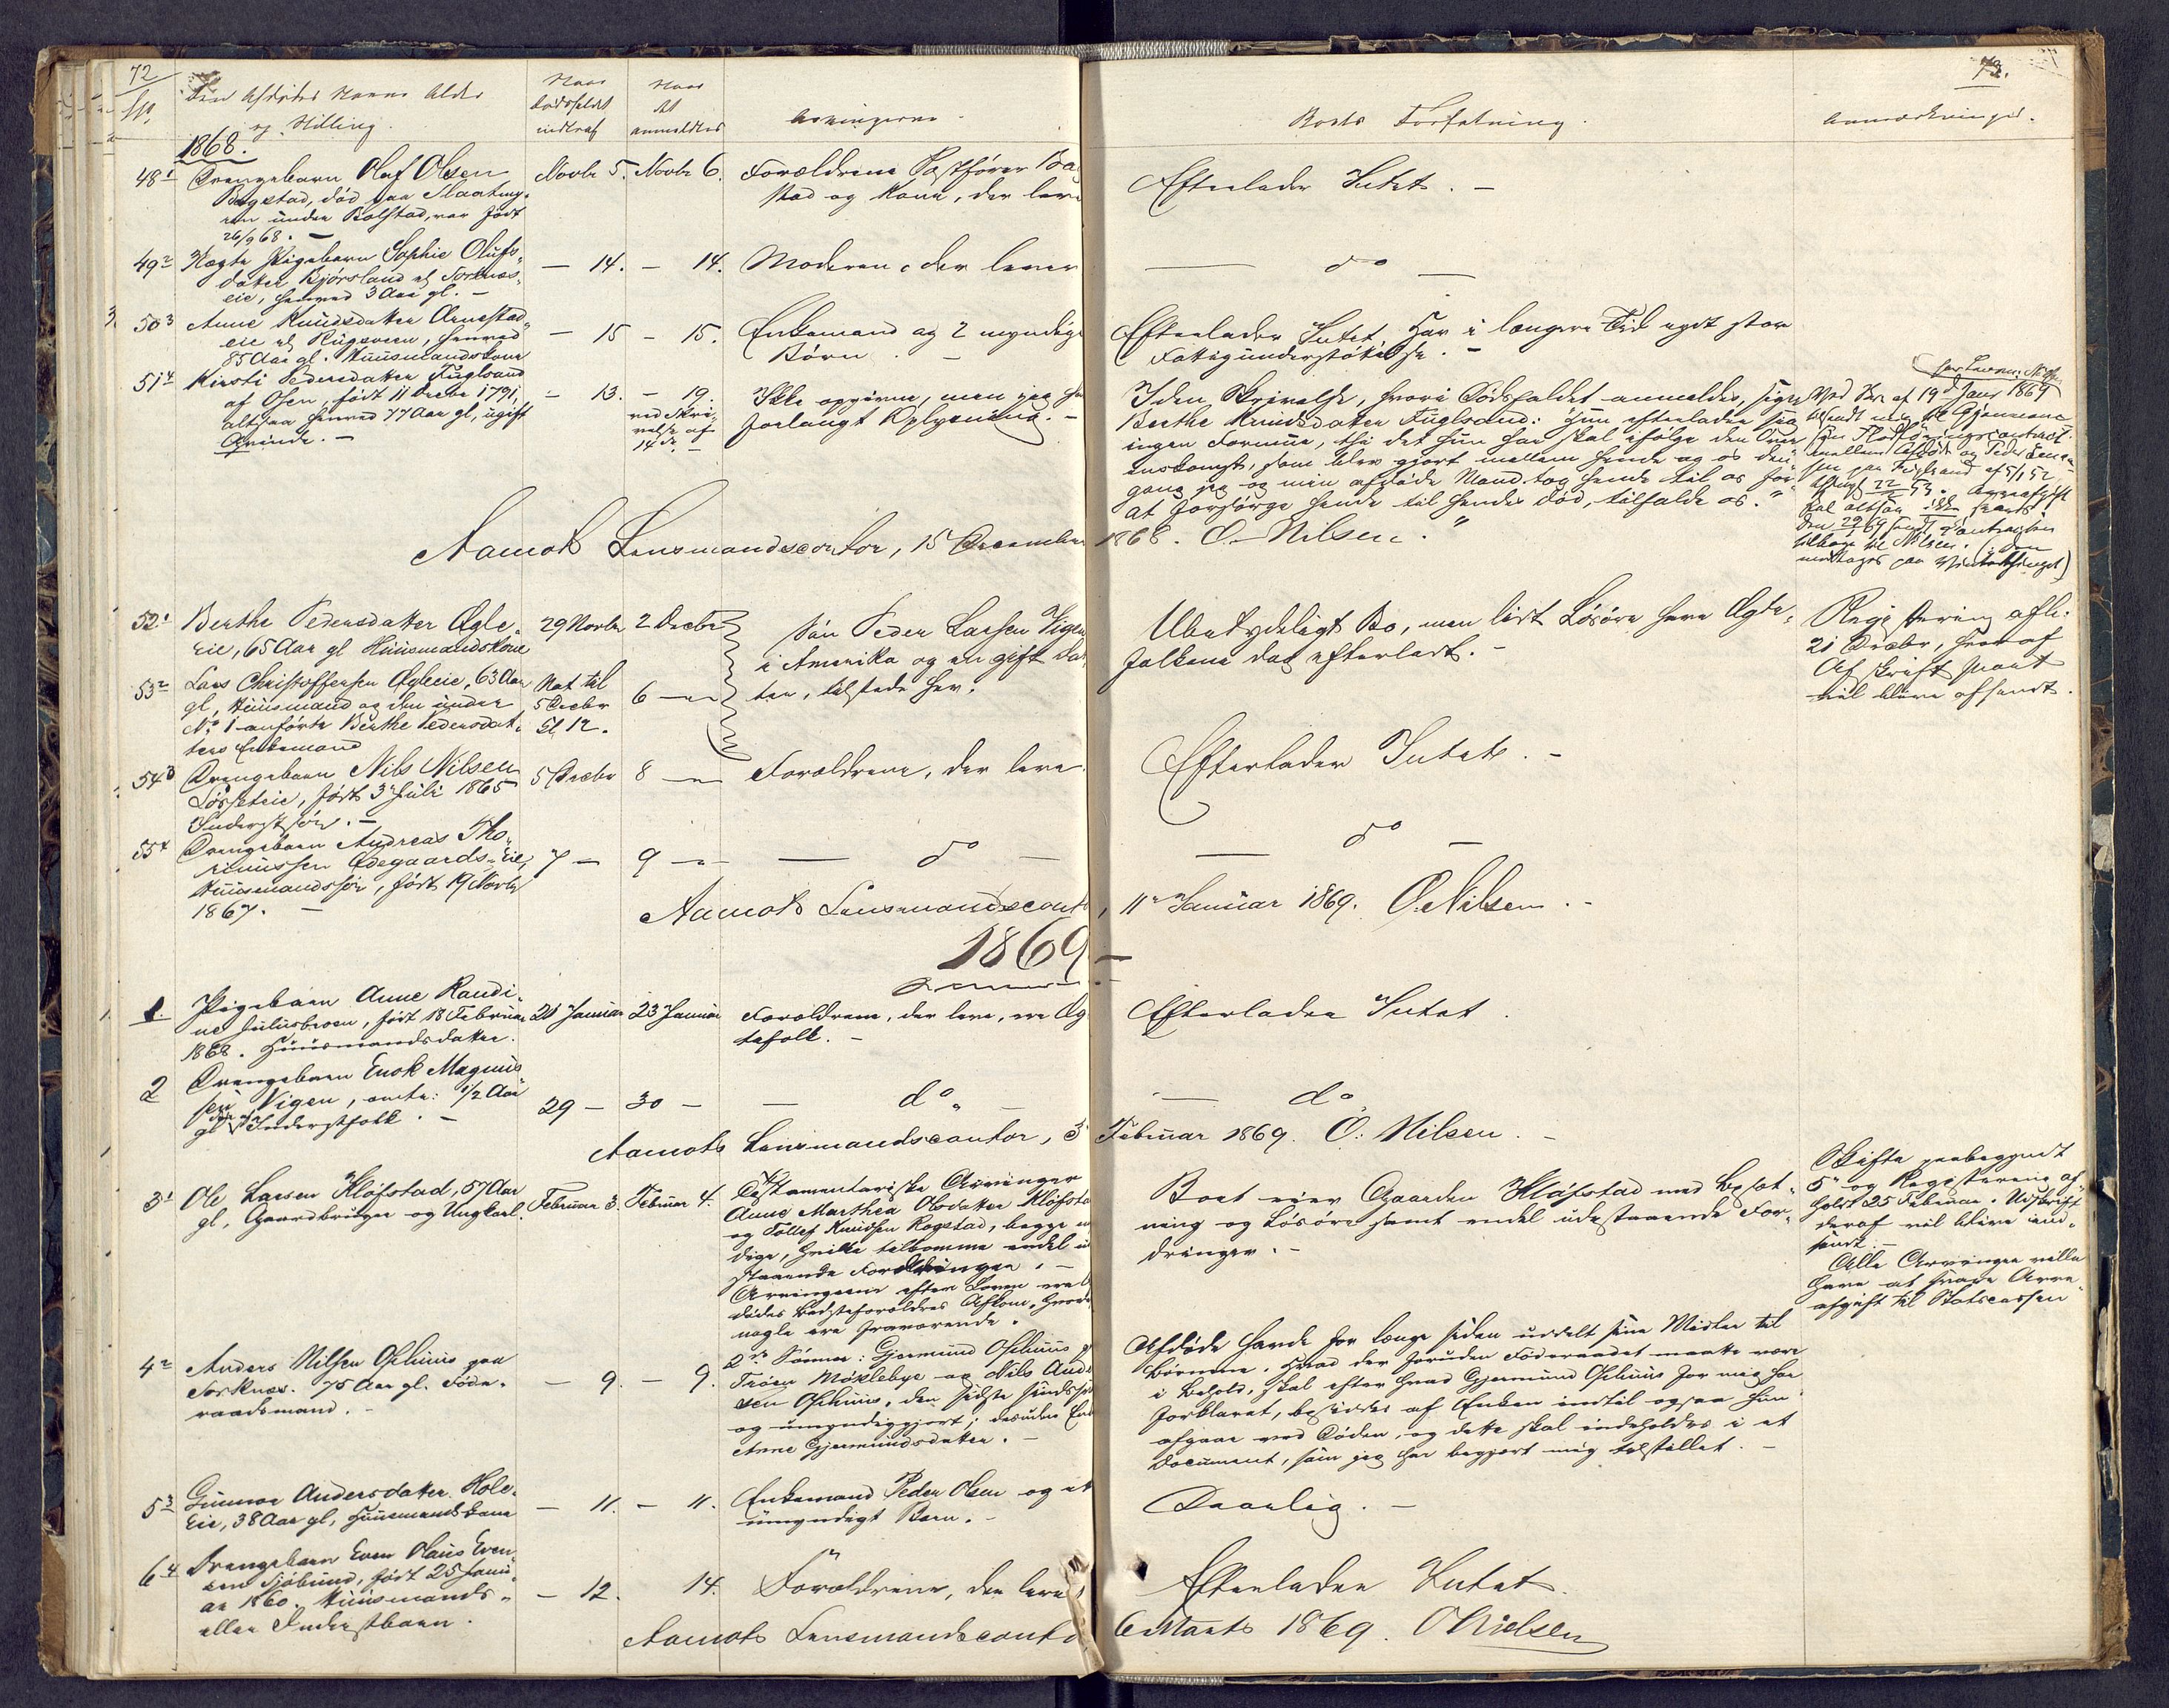 72
No
Den Afdødes Navn Alder
og Stilling.
Naar
Dødsfaldet
indtraf
Naar
det
anmeldtes
Arvingerne.
Boets Forfatning.
73.
Anmærkninger.
1868.
48 1 Drengebarn Olaf Olsen
Bagstad, død paa
under Bolstad, var født
26/9 68. –
Novbr 5. Novbr 6.
Forældrene Postfører
stad og Kone, der leve
Efterlader Intet. –
49 2 Uægte Pigebarn Sophie Olufs-
datter Kjørsland af
eie, henved 3 Aar gl. –
– 14. – 14. Moderen, der lever
– do –
50 3 Anne Knudsdatter Arnestad-
eie af henved
85 Aar gl. Huusmandskone
– 15 – 15. Enkemand og 2 myndige
Børn. –
Efterlader Intet. Har i længere Tid nydt stor
Fattigunderstøttelse. –
51 4 Kirsti Pedersdatter Fuglsand
af Osen, født 11 Decbr 1791,
altsaa henved 77 Aar gl, ugift
Qvinde. –
– 13. – 19.
ved Skri-
velse af
14 ds. –
Ikke opgivne, men jeg har
forlangt Oplysning. –
I den Skrivelse, hvori Dødsfaldet anmeldes, siger
Berthe Knudsdatter Fuglsand: "hun efterlader sig
ingen Formue, thi det hun har skal ifølge den Over-
enskomst, som blev gjort mellem hende og os den-
gang jeg og min afdøde Mand tog hende til os for
at forsørge hende til hendes Død, tilfalde os."
Ved Br. af 19de Janr 1869
tilsendt mig til Gjennem-
syn
mellem Afdøde og Peder
paa Fuglsand af 5/1 52
skal altsaa ikke svares
tilbage til Nilsen.
Aamots Lensmandscontor, 15 December 1868. O. Nilsen.
52 1 Berthe Pedersdatter Øgle-
eie, 65 Aar gl Huusmandskone
29 Novbr 2 Decbr
Søn Peder Larsen Vigen
i Amerika og en gift Dat-
ter, tilstede her.
Ubetydeligt Bo, men lidt Løsøre have Ægte-
folkene dog efterladt. –
Registrering afh.
21 Decbr, hvoraf
Afskrift snart
vil blive afsendt.
53 2 Lars Christoffersen Øgleeie, 63 Aar
gl, Huusmand og den under
No 1 anførte Berthe Pedersdat-
ters Enkemand
Nat til
5 Decbr
Kl 12.
6 –
54 3 Drengebarn Nils Nilsen
Løsseteie, født 3 Juli 1865
Inderstsøn. –
5 Decbr 8 – Forældrene, der leve.
Efterlader Intet. –
55 4 Drengebarn Andreas Tho-
Ødegaards-Eie,
Huusmandssøn, født 19 Novbr
1867. –
7 – 9 – – do –
– do –
Aamots Lensmandscontor, 11 Januar 1869. O. Nilsen. –
1869 –
1. Pigebarn Anne Randi-
ne Juliusbroen, født 18 Februar
1868. Huusmandsdatter.
21 Januar 23 Januar
Forældrene, der leve, ere Æg-
tefolk. –
Efterlader Intet.
2 Drengebarn Enok Magnus-
sen Vigen, omtr: 1/2 Aar
gl Inderstfolk. –
29 – 30 – – do –
– do
Aamots Lensmandscontor, 3 Februar 1869. O. Nilsen. –
3 1 Ole Larsen Kløfstad, 57 Aar
gl, Gaardbruger og Ungkarl.
Februar 3. Februar 4.
Testamentariske Arvinger
Anne Marthea Olsdatter Kløfstad
og Tollef Knudsen Rogstad, begge myn-
dige, hvilke tilkomme endel ude-
staaende Fordringer. –
Arvingerne efter Loven ere Af-
dødes Bedsteforældres Afkom, hvoraf
nogle ere fraværende.
Boet eier Gaarden Kløfstad med Besæt-
ning og Løsøre samt endel udestaaende For-
dringer. –
Skifte paabegyndt
5te og Registrering af-
holdt 25 Februar. Udskrift
deraf vil blive ind-
sendt. –
Alle Arvinger ville
have at svare Arve-
afgift til Statscassen
4 2 Anders Nilsen Oschuus paa
Torknæs. 75 Aar gl. Føde-
raadsmand. –
– 9. – 9.
2de Sønner: Gjermund Oschuus paa
Trøen Møklebye og Nils Ander-
sen Oschuus, den sidste sindssyg
og umyndiggjort; desuden Enke
Anne Gjermundsdatter. –
Afdøde havde for længe siden uddelt sine Midler til
Børnene. Hvad der foruden Føderaadet maatte være
i Behold, skal efter hvad Gjermund Oschuus for mig har
forklaret, besiddes af Enken indtil ogsaa hun
afgaar ved Døden, og dette skal indeholdes i et
Document, som jeg har begjært mig tilstillet. –
5 3 Gunnor Andersdatter Hole-
Eie, 38 Aar gl, Huusmandskone
– 11. – 11. Enkemand Peder Olsen og et
umyndigt Barn. –
Daarlig. –
6 4 Drengebarn Even Olaus Even-
sen Sjøbund, født 25 Janu-
ar 1860. Huusmands-
eller Inderstbarn.
– 12. 14. Forældrene, der leve
Efterlader Intet.
Aamots Lensmandscontor 6 Marts 1869. O Nielsen